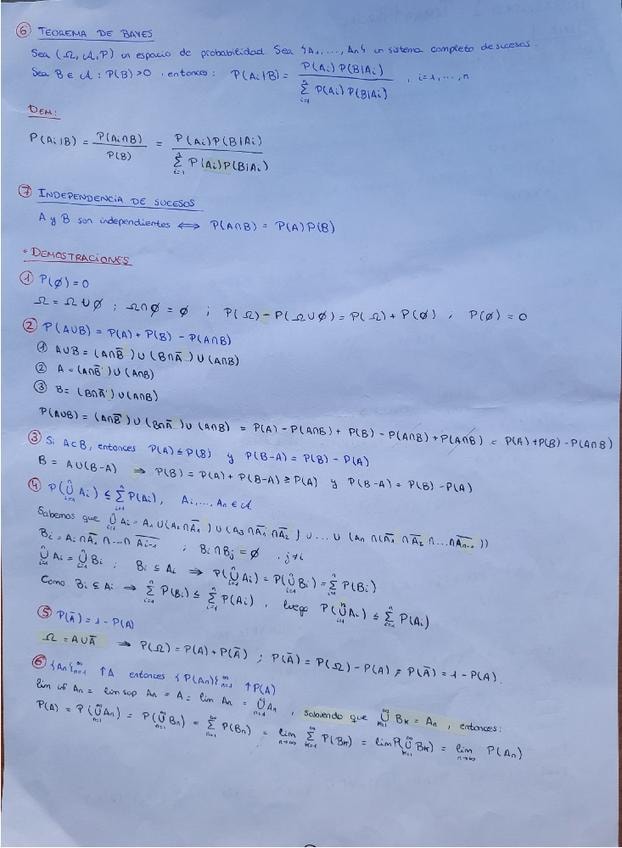 ⑥ TEOREMA DE BAYES
Sea (Ω, 𝒜, P) un espacio de probabilidad. Sea {A₁, ..., Aₙ} un sistema completo de sucesos.
Sea B ∈ 𝒜 : P(B) > 0, entonces: P(Aᵢ|B) = P(Aᵢ) P(B|Aᵢ) / ∑ⁿᵢ₌₁ P(Aᵢ) P(B|Aᵢ) , i = 1, ..., n
DEM:
P(Aᵢ|B) = P(Aᵢ∩B) / P(B) = P(Aᵢ)P(B|Aᵢ) / ∑ⁿᵢ₌₁ P(Aᵢ)P(B|Aᵢ)
⑦ INDEPENDENCIA DE SUCESOS
A y B son independientes ⟺ P(A∩B) = P(A)P(B)
• DEMOSTRACIONES
① P(∅) = 0
Ω = Ω ∪ ∅ ; Ω∩∅ = ∅ ; P(Ω) = P(Ω∪∅) = P(Ω) + P(∅) , P(∅) = 0
② P(A∪B) = P(A) + P(B) - P(A∩B)
① A∪B = (A∩B̅) ∪ (B∩A̅) ∪ (A∩B)
② A = (A∩B̅) ∪ (A∩B)
③ B = (B∩A̅) ∪ (A∩B)
P(A∪B) = (A∩B̅) ∪ (B∩A̅) ∪ (A∩B) = P(A) - P(A∩B) + P(B) - P(A∩B) + P(A∩B) = P(A) + P(B) - P(A∩B)
③ Si A⊂B, entonces P(A) ≤ P(B) y P(B-A) = P(B) - P(A)
B = A∪(B-A) ⇒ P(B) = P(A) + P(B-A) ≥ P(A) y P(B-A) = P(B) - P(A)
④ P(⋃ⁿᵢ₌₁ Aᵢ) ≤ ∑ⁿᵢ₌₁ P(Aᵢ), A₁, ..., Aₙ ∈ 𝒜
Sabemos que ⋃ⁿᵢ₌₁ Aᵢ = A₁ ∪ (A₂∩A̅₁) ∪ (A₃∩A̅₁∩A̅₂) ∪ ... ∪ (Aₙ ∩ (A̅₁∩A̅₂∩...∩A̅ₙ₋₁))
Bᵢ = Aᵢ∩A̅₁∩...∩A̅ᵢ₋₁ ; Bᵢ∩Bⱼ = ∅ , j≠i
⋃ⁿᵢ₌₁ Aᵢ = ⋃ⁿᵢ₌₁ Bᵢ ; Bᵢ ⊆ Aᵢ ⇒ P(⋃ⁿᵢ₌₁ Aᵢ) = P(⋃ⁿᵢ₌₁ Bᵢ) = ∑ⁿᵢ₌₁ P(Bᵢ)
Como Bᵢ ⊆ Aᵢ ⇒ ∑ⁿᵢ₌₁ P(Bᵢ) ≤ ∑ⁿᵢ₌₁ P(Aᵢ) , luego P(⋃ⁿᵢ₌₁ Aᵢ) ≤ ∑ⁿᵢ₌₁ P(Aᵢ)
⑤ P(A̅) = 1 - P(A)
Ω = A∪A̅ ⇒ P(Ω) = P(A) + P(A̅) ; P(A̅) = P(Ω) - P(A) ; P(A̅) = 1 - P(A).
⑥ {Aₙ}^∞ₙ₌₁ ↑A entonces {P(Aₙ)}^∞ₙ₌₁ ↑P(A)
lim inf Aₙ = lim sup Aₙ = A = lim Aₙ = ⋃^∞ₙ₌₁ Aₙ , sabiendo que ⋃ⁿₖ₌₁ Bₖ = Aₙ , entonces:
P(A) = P(⋃^∞ₙ₌₁ Aₙ) = P(⋃^∞ₙ₌₁ Bₙ) = ∑^∞ₙ₌₁ P(Bₙ) = lim ₙ→∞ ∑ⁿₖ₌₁ P(Bₖ) = lim P(⋃ⁿₖ₌₁ Bₖ) = lim ₙ→∞ P(Aₙ)